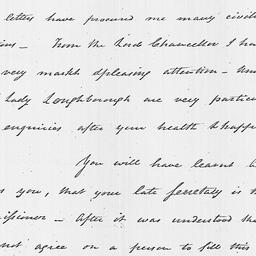 letters have procured me many civili
ions – From the Lord Chancellor I ha
very markd & pleasing attention –
Lady Loughborough are very particu
enquiries after your health & happ
You will have learnt b
s you, that your late secretary is n
issioner – After it was understood tha
not agree on a person to fill this